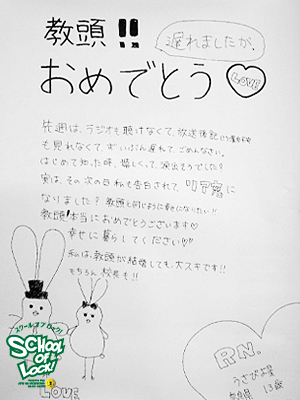 教頭!!
遅れましたが、
おめでとう♡
LOVE
先週は、ラジオも聴けなくて、放送後記
も見れなくて、ずいぶん遅れて、ごめんなさい。
はじめて知った時、嬉しくって、涙出そうでした?
実は、その次の日私も告白されて、リア充に
なりました? 教頭と同じように幸せになりたい!!
教頭!本当におめでとうございます♡
幸せに暮らしてください♡
私は、教頭が結婚しても、大スキです!!
もちろん校長も!!
スクール オブ ロック!
SCHOOL OF LOCK!
LOVE
RN.
うさぴょ星
奈良県 13歳